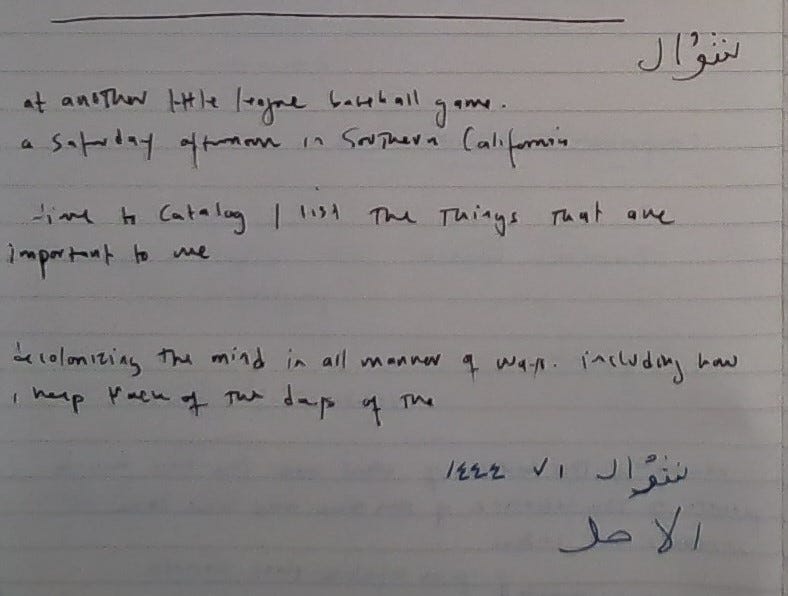 شوّال
at another little league baseball game.
a saturday afternoon in Southern California
time to catalog / list the things that are
important to me
decolonizing the mind in all manner of ways. including how
i keep track of the days of the
شوّال ٧١ ١٤٤٤
الاحد